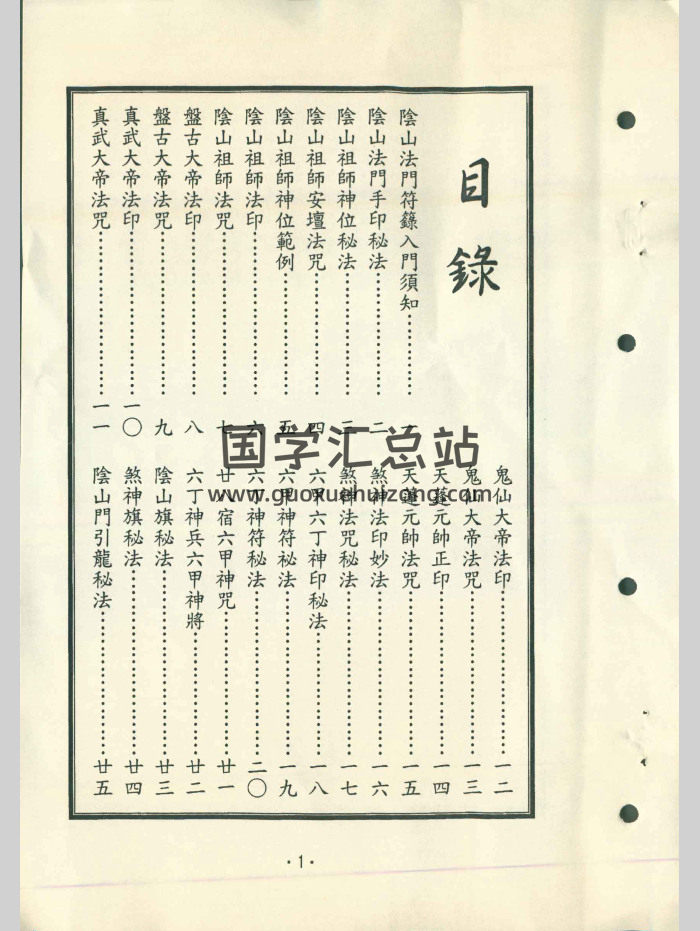 目錄
陰山法門符籙入門須知 一
陰山法門手印秘法 二
陰山祖師神位秘法 三
陰山祖師安壇法咒 四
陰山祖師神位範例 五
陰山祖師法印 六
陰山祖師法咒 七
盤古大帝法印 八
盤古大帝法咒 九
真武大帝法印 一〇
真武大帝法咒 一一
鬼仙大帝法印 一二
鬼仙大帝法咒 一三
天蓬元帥正印 一四
天蓬元帥法咒 一五
煞神法印妙法 一六
煞神法咒秘法 一七
六甲六丁神印秘法 一八
六甲神符祕法 一九
六丁神符秘法 二〇
廿八宿六甲神咒 廿一
六丁神兵六甲神將 廿二
陰山旗秘法 廿三
煞神旗秘法 廿四
陰山門引龍秘法 廿五
·1·
国学汇总站
www.guoxuehuizong.com